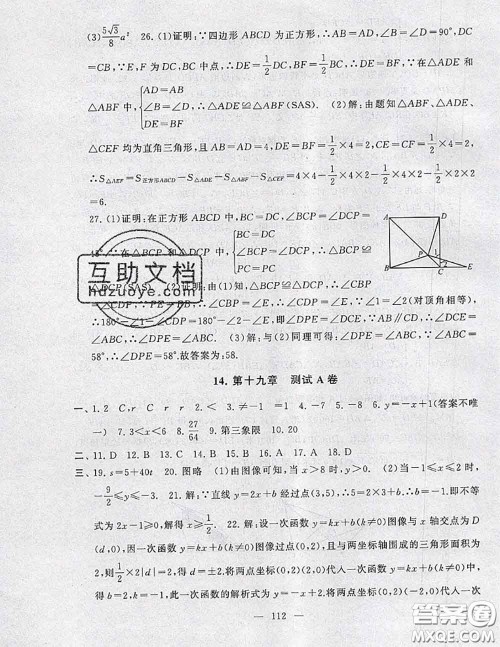 (3) 5√3/8 a² 26. (1)证明:∵四边形 ABCD 为正方形,∴AB=AD,∠B=∠D=90°,
DC=CB,∵E,F 为 DC,BC 中点,∴DE=1/2DC,BF=1/2BC,∴DE=BF,∵在△ADE 和
△ABF 中,{AD=AB ∠B=∠D, DE=BF ∴△ADE≌△ABF(SAS). (2)解:由题知△ABF,△ADE,
△CEF 均为直角三角形,且 AB=AD=4,DE=BF=1/2×4=2,CE=CF=1/2×4=2,
∴S△AEF=S正方形ABCD-S△ADE-S△ABF-S△CEF=4×4-1/2×4×2-1/2×4×2-1/2×2×2
=6.
27. (1)证明:在正方形 ABCD 中,BC=DC,∠BCP=∠DCP=
∵在△BCP 和△DCP 中,{BC=DC ∠BCP=∠DCP, PC=PC ∴△BCP≌
△DCP(SAS).
∴∠CBP=∠E,∵∠1=∠2(对顶角相等),
∴180°-∠1-∠CDP=180°-∠2-∠E,即∠DPE=∠DCE,∵AB∥CD,∴∠DCE=
∠ABC,∴∠DPE=∠ABC. (3)解:与(2)同理可得:∠DPE=∠ABC,∵∠ABC=
58°,∴∠DPE=58°.故答案为:58.
A D P B C E 1 2
互助文档
hdzuoye.com
14. 第十九章 测试 A 卷
一、1. 2 C,r C r 2. < 3. ≠-1 4. = 5. < 6. y=-x+1(答案不唯
一) 7. 3<x<6 8. 27/64 9. 第三象限 10. 20
二、11. D 12. D 13. B 14. D 15. B 16. A 17. A 18. D
三、19. s=5+40t 20. 图略 (1)由图像可知,当 x>8 时,y<0. (2)当-1≤x≤2 时,
-9/2≤y≤-3. 21. 解:∵直线 y=2x+b 经过点(3,5),∴5=2×3+b∴b=-1.即不等
式为 2x-1≥0,解得 x≥1/2. 22. 解:设一次函数 y=kx+b(k≠0)图像与 x 轴交点为 D
(d,0),因一次函数 y=kx+b(k≠0)图像过点(0,2),且与两坐标轴围成的三角形面积为
2,则有1/2×2|d|=2,得 d=±2,将两点坐标(0,2)(2,0)代人一次函数 y=kx+b(k≠0)
中,得 k=-1,b=2,此一次函数的解析式为 y=-x+2,将两点坐标(0,2)(-2,0)代人一次
— 112 —
答案圈
MXQE.COM